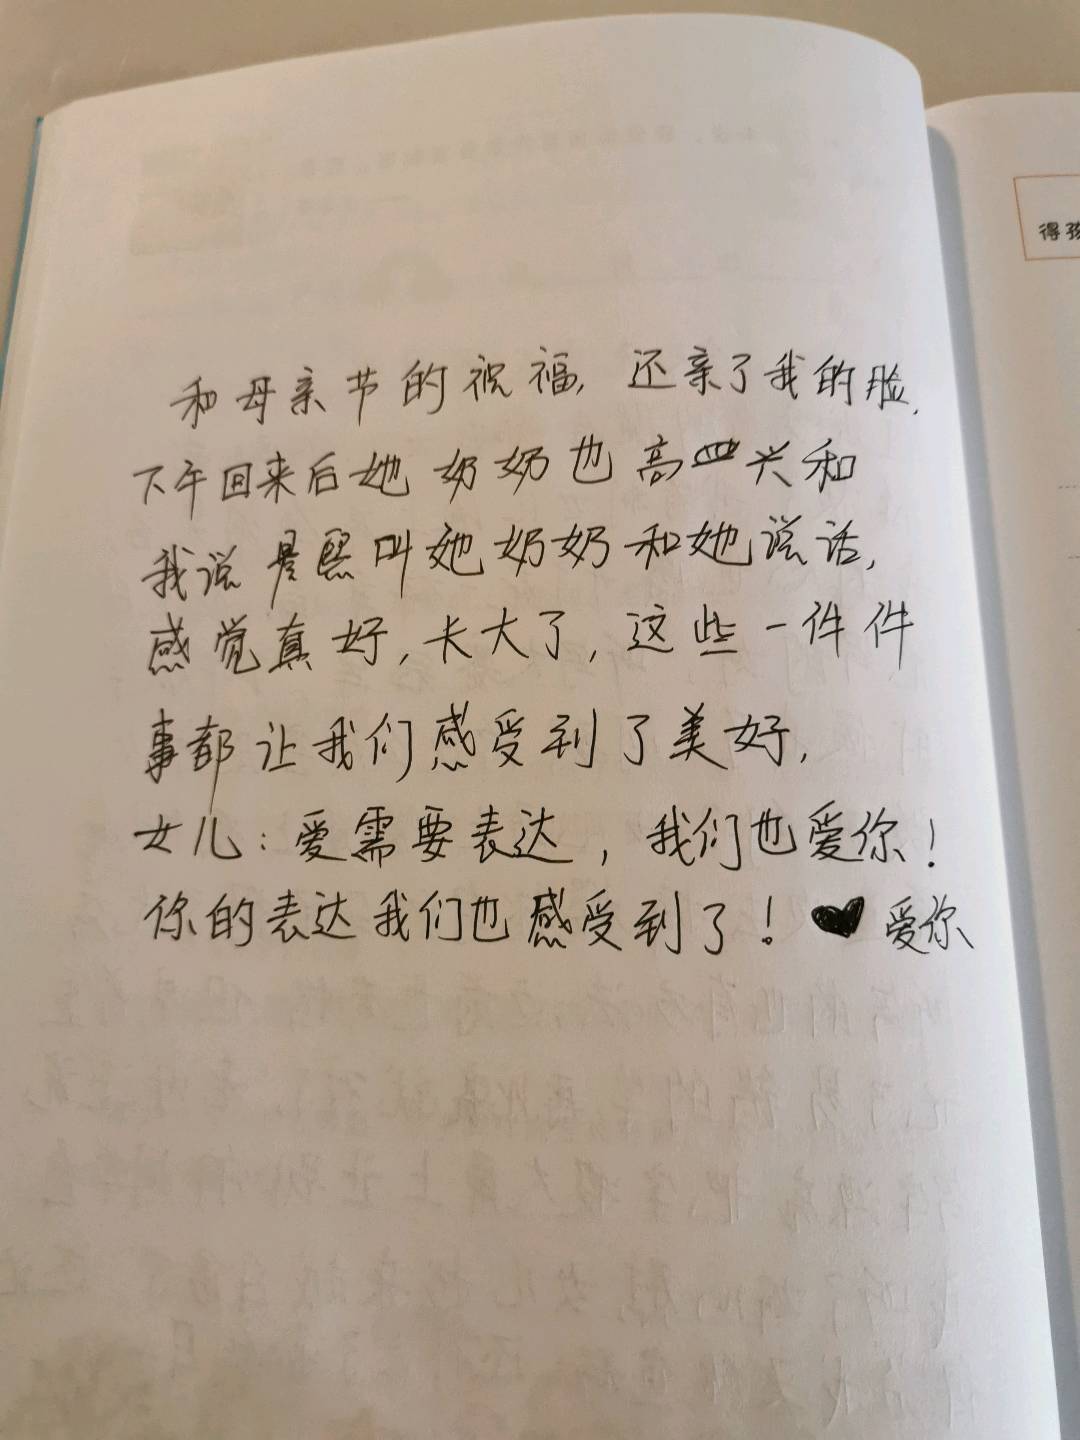 和母亲节的祝福,还亲了我的脸,
下午回来后她奶奶也高兴和
我说景熙叫她奶奶和她说话,
感觉真好,长大了,这些一件件
事都让我们感受到了美好,
女儿:爱需要表达,我们也爱你!
你的表达我们也感受到了!♥爱你
得孩